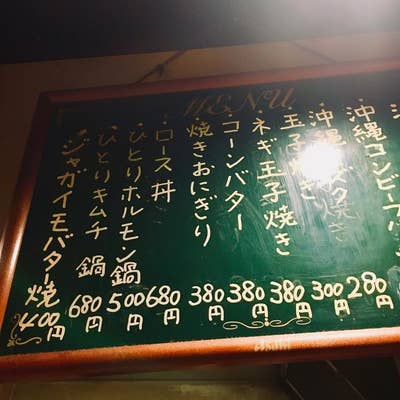 MENU
沖縄コンビーフ
沖縄 焼き 280円
玉子焼き 300円
ネギ玉子焼き 380円
コーンバター 380円
焼きおにぎり 380円
ロース丼 680円
ひとりホルモン鍋 500円
ひとりキムチ鍋 680円
ジャガイモバター焼 400円
Asahi